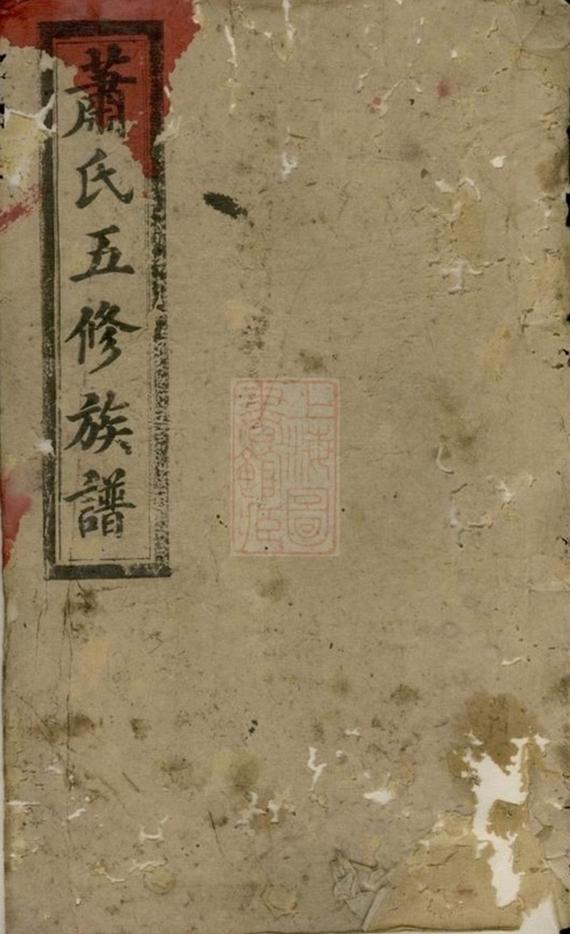 蕭氏五修族譜
上海圖書館藏